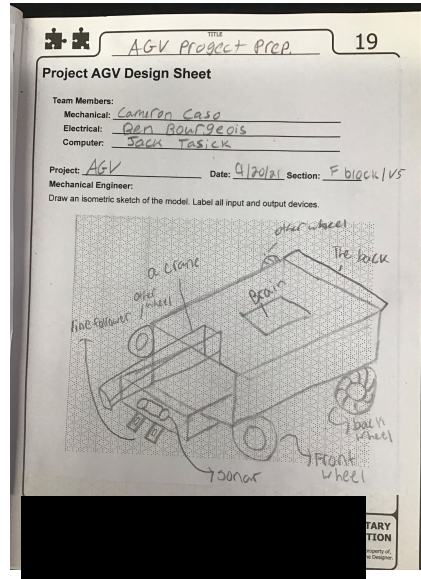 TITLE
AGV Progect Prep.
19
Project AGV Design Sheet
Team Members:
Mechanical: Cameron Caso
Electrical: Ben Bourgeois
Computer: Jack Tasick
Project: AGV Date: 9/20/21 Section: F block/V5
Mechanical Engineer:
Draw an isometric sketch of the model. Label all input and output devices.
other wheel
The back
a crane
Brain
other wheel
line follower
back wheel
Front wheel
sonar
TARY
TION
property of,